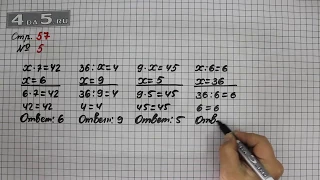 4DA5.RU
Стр. 57
№ 5
x·7=42 36:x=4 9·x=45 x:6=6
x=6 x=9 x=5 x=36
6·7=42 36:9=4 9·5=45 36:6=6
42=42 4=4 45=45 6=6
Ответ: 6 Ответ: 9 Ответ: 5 Отв